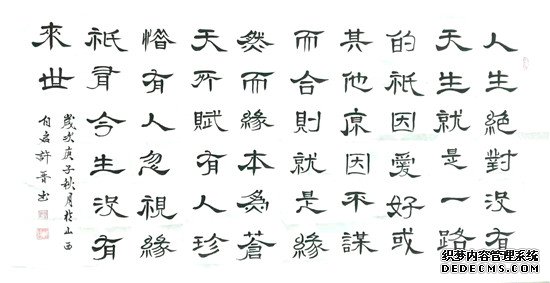 人生絕對沒有
天生就是一路
的祇因愛好或
其他原因不謀
而合則就是緣
然而緣本為蒼
天所賦有人珍
惜有人忽視緣
祇有今生沒有
來世
歲次庚子秋月於山西
許晋書
织梦内容管理系统
DEDECMS.COM